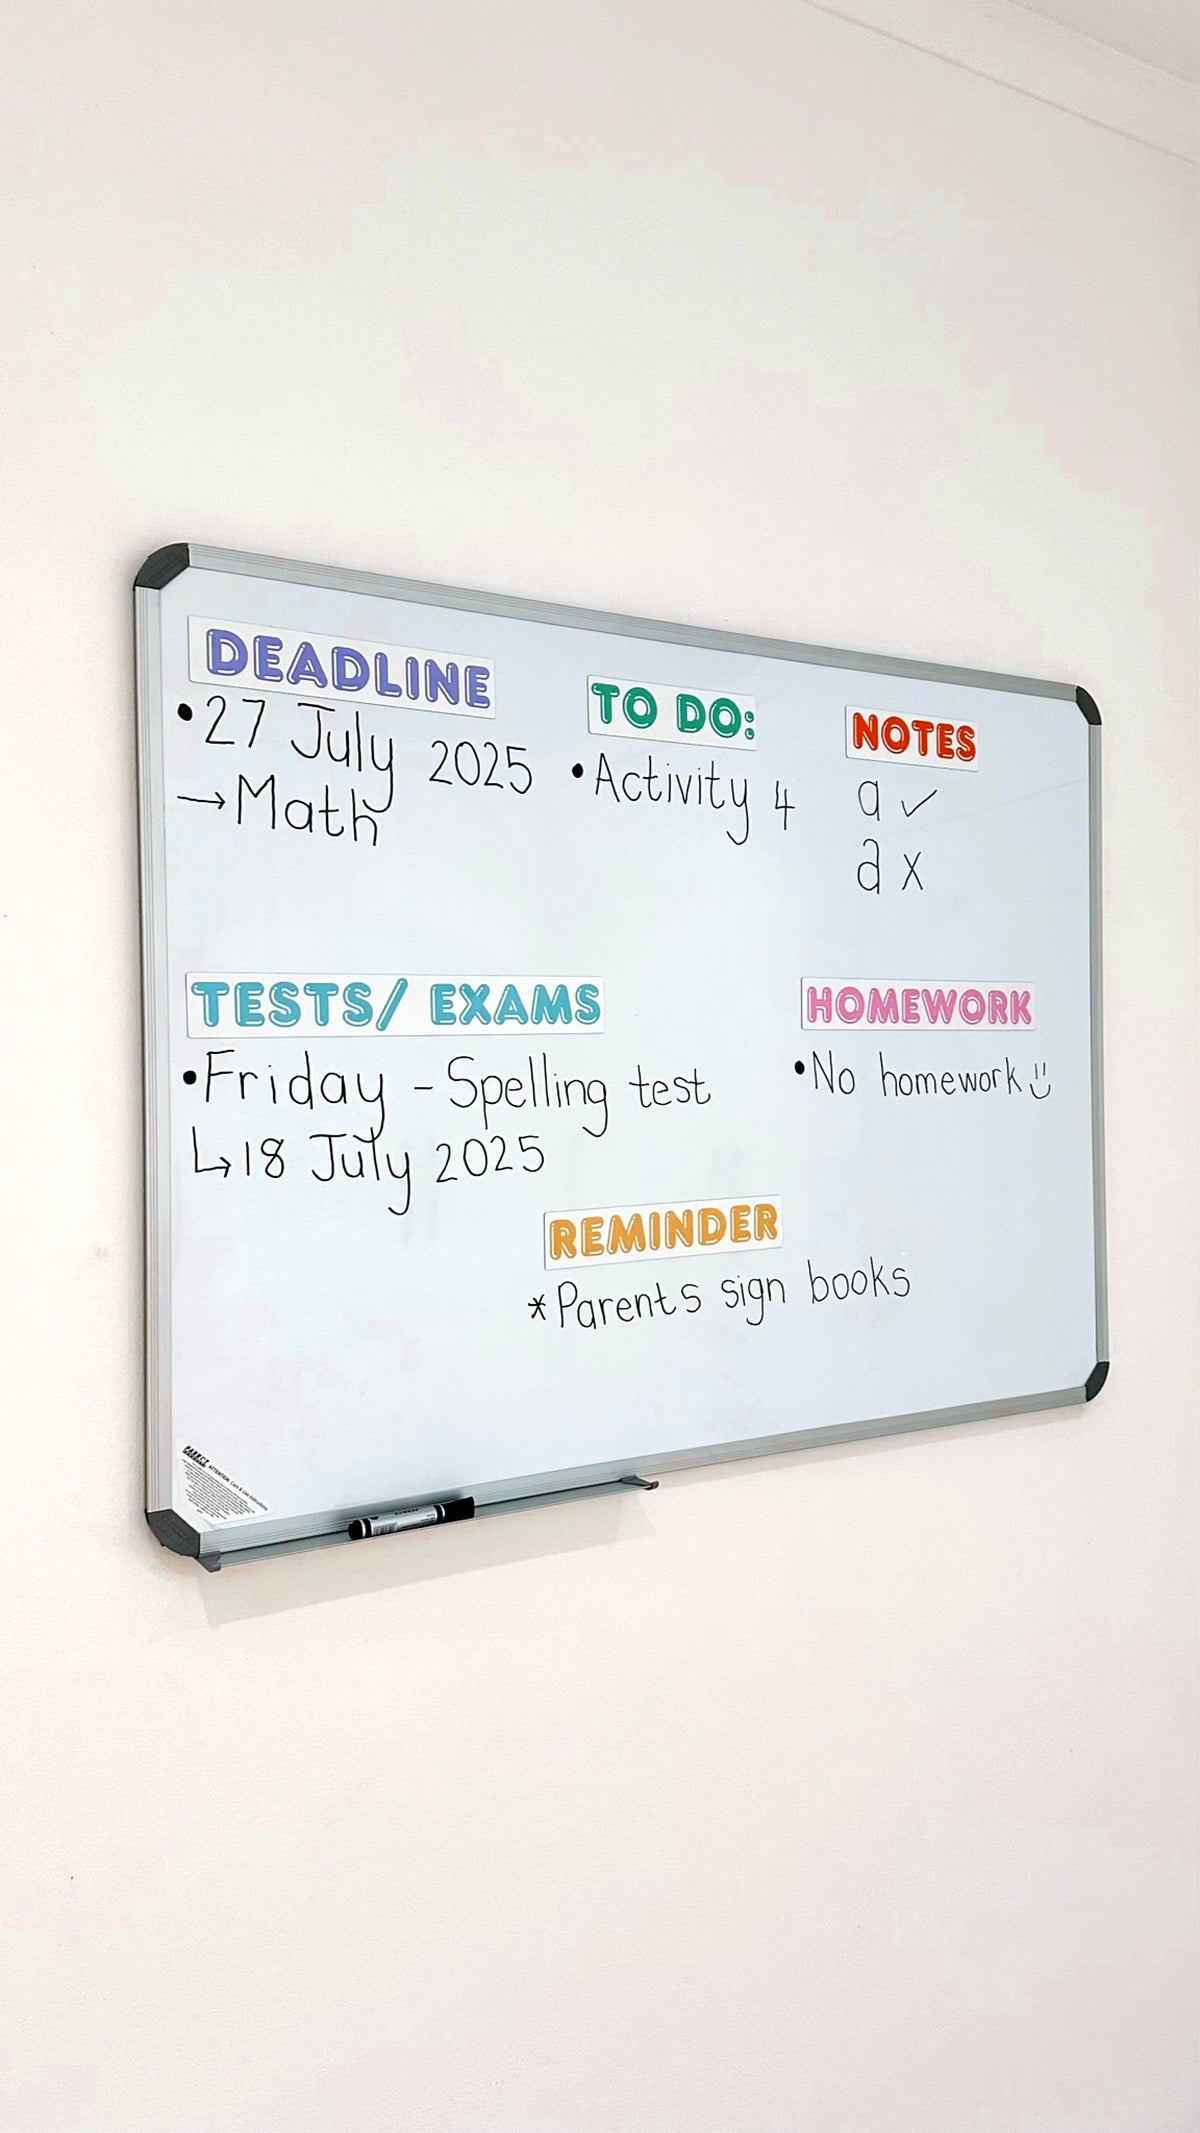 DEADLINE
• 27 July 2025
→ Math
TO DO:
• Activity 4
NOTES
a ✓
a x
TESTS/ EXAMS
• Friday - Spelling test
↳ 18 July 2025
HOMEWORK
• No homework :)
REMINDER
* Parents sign books
PARROT
ATTENTION Care & Use Instructions